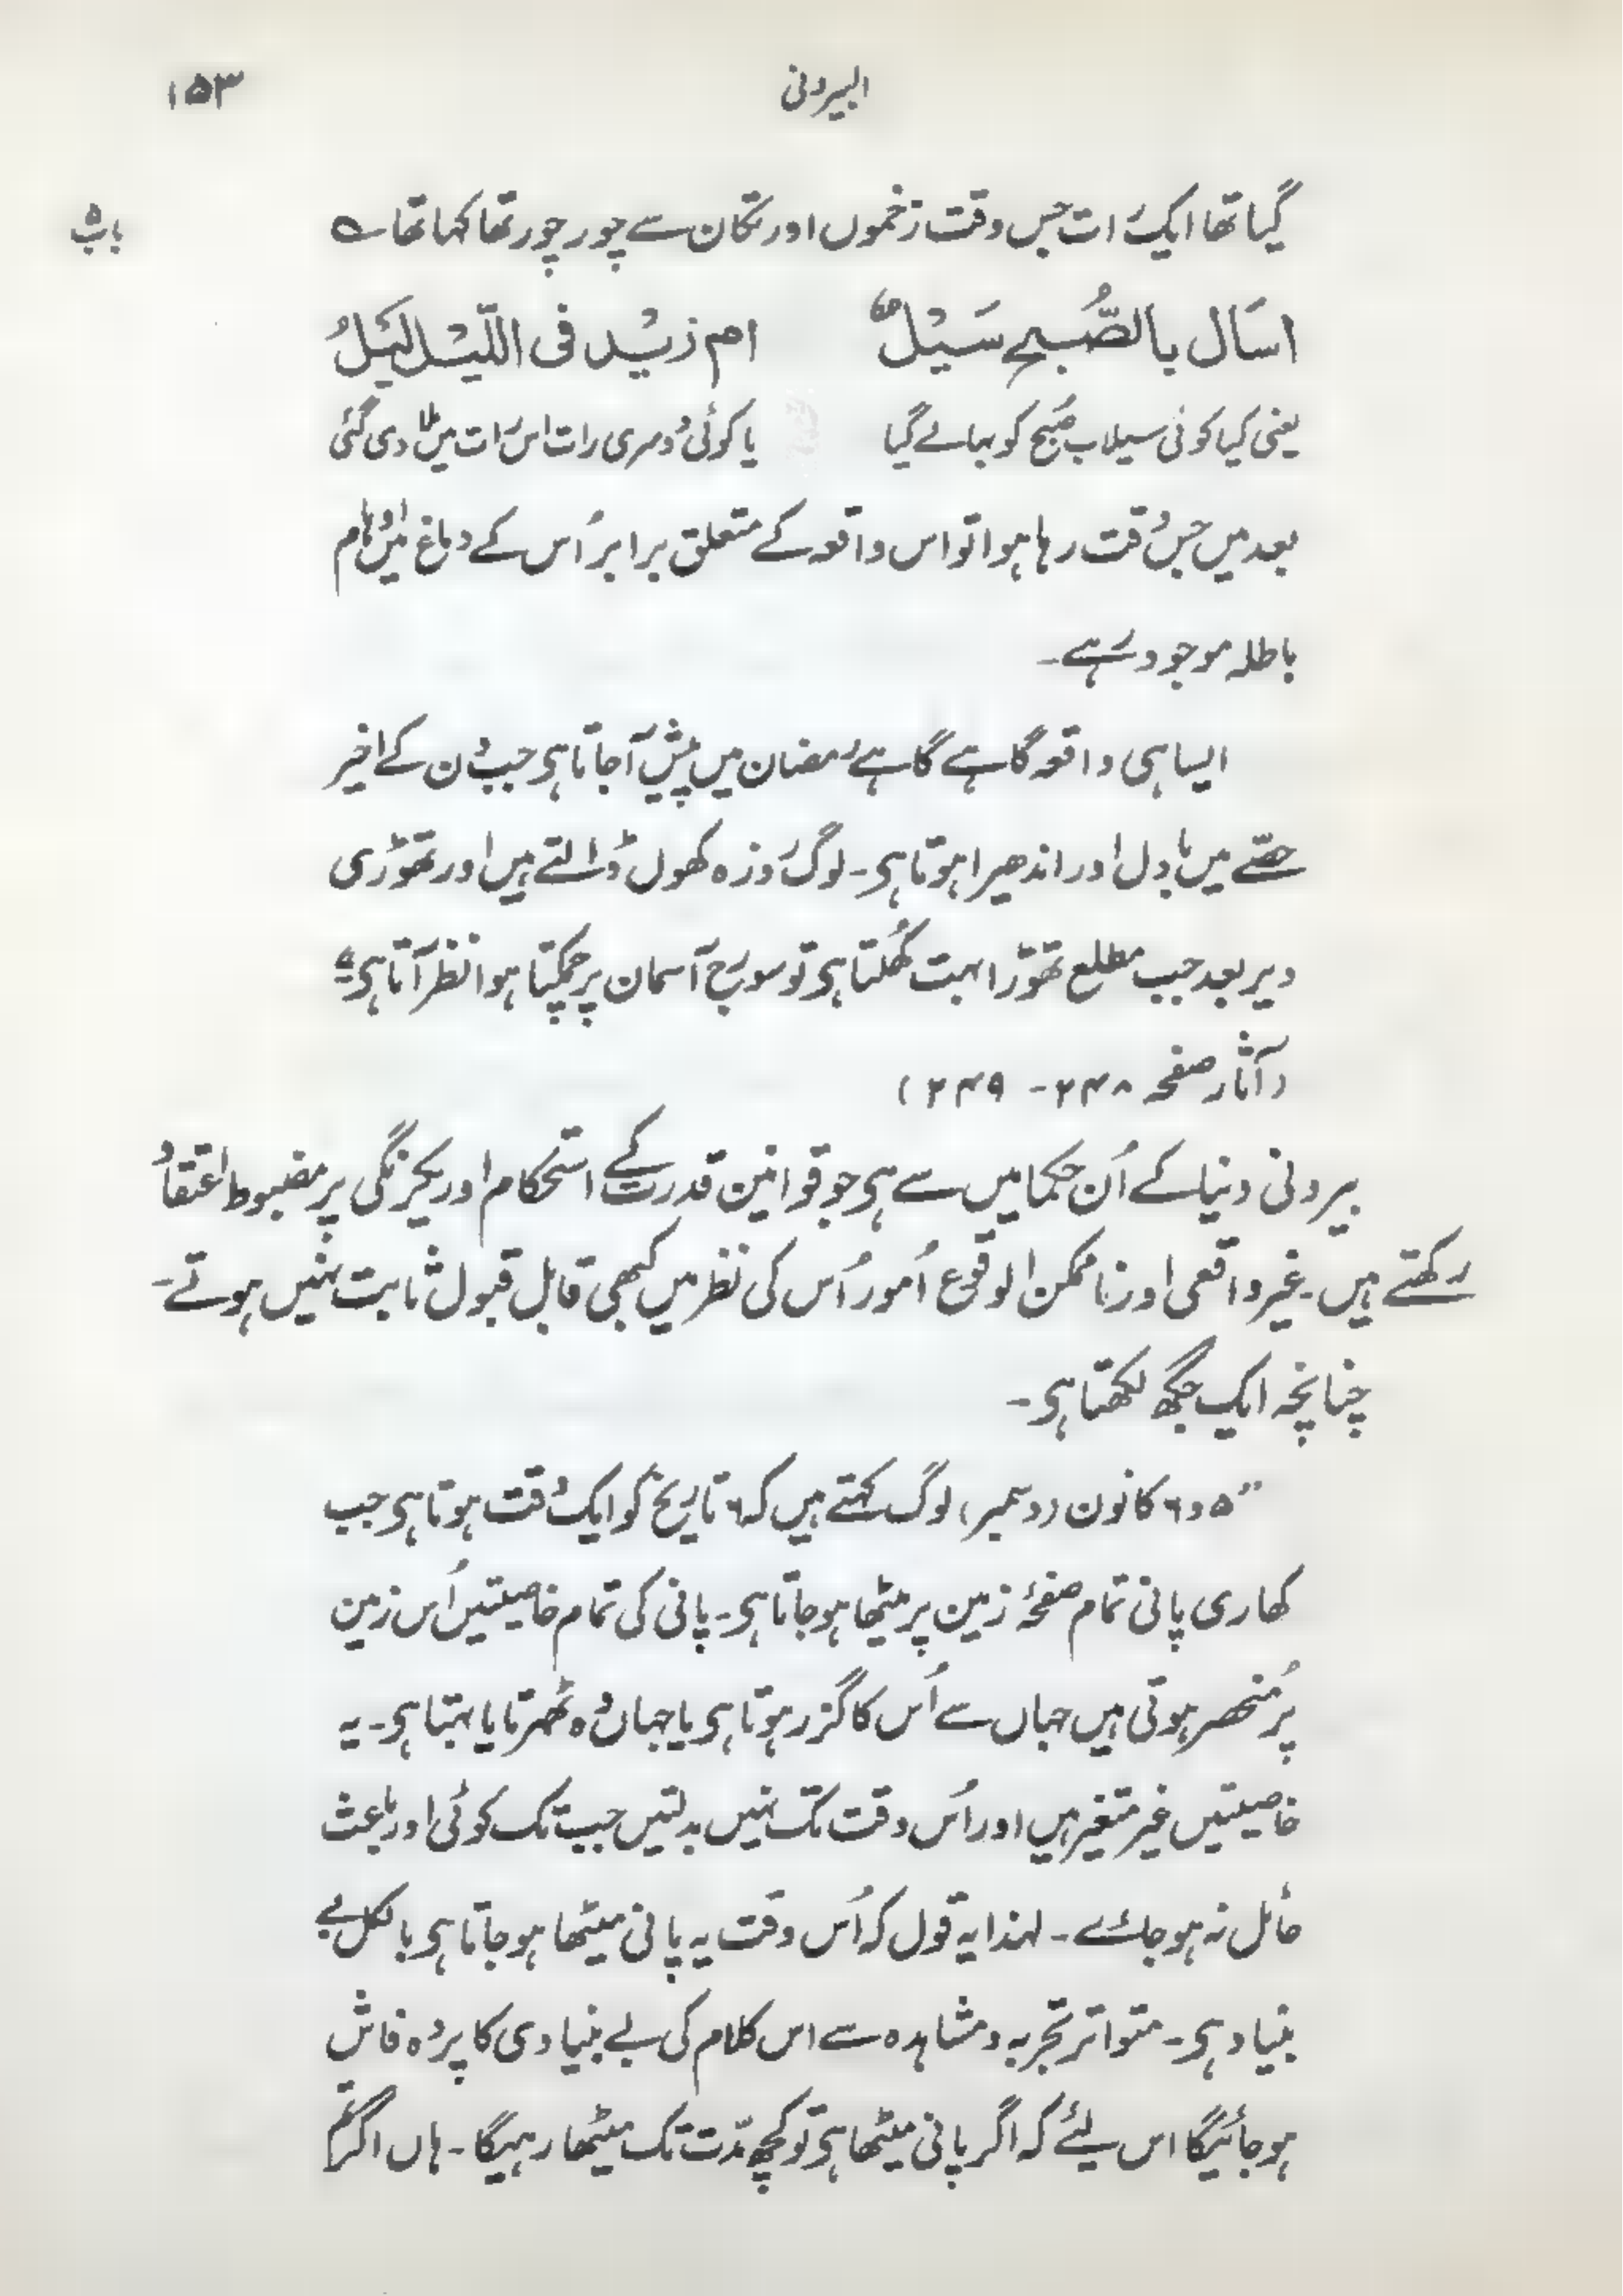 البیرونی
۱۵۳
باب ۵
گیا تھا ایک رات جس وقت زخموں اور تکان سے چور چور تھا کہا تھا ؎
اسَال بالصُّبح سَیْلٌ ام زیْد فی اللّیْل لَیْلُ
یعنی کیا کوئی سیلاب صُبح کو بہا لے گیا یا کوئی دوسری رات اس رات میں ملا دی گئی
بعد میں جس وقت رہا ہوا تو اس واقعہ کے متعلق برابر اُس کے دماغ میں اوہام
باطلہ موجود رہے۔
ایسا ہی واقعہ گاہے گاہے رمضان میں پیش آجاتا ہی جب دن کے اخیر
حصّے میں بادل اور اندھیرا ہوتا ہی۔ لوگ روزہ کھول ڈالتے ہیں اور تھوڑی
دیر بعد جب مطلع تھوڑا بہت کھُلتا ہی تو سورج آسمان پر چمکتا ہوا نظر آتا ہی"
(آثار صفحہ ۲۴۸ - ۲۴۹)
بیرونی دنیا کے اُن حکما میں سے ہی جو قوانین قدرت کے استحکام اور یکرنگی پر مضبوط اعتقاد
رکھتے ہیں۔ غیر واقعی اور ناممکن الوقوع اُمور اُس کی نظر میں کبھی قابل قبول ثابت نہیں ہوتے۔
چنانچہ ایک جگھ لکھتا ہی۔
"۵ و ۶ کانون (دسمبر) لوگ کہتے ہیں کہ ۶ تاریخ کو ایک وقت ہوتا ہی جب
کھاری پانی تمام صفحۂ زمین پر میٹھا ہو جاتا ہی۔ پانی کی تمام خاصیتیں اُس زمین
پر مُنحصر ہوتی ہیں جہاں سے اُس کا گزر ہوتا ہی یا جہاں وہ ٹھہرتا یا بہتا ہی۔ یہ
خاصیتیں غیر متغیر ہیں اور اُس وقت تک نہیں بدلتیں جب تک کوئی اور باعث
حائل نہ ہو جائے۔ لہذا یہ قول کہ اُس وقت یہ پانی میٹھا ہو جاتا ہی بالکل بے
بنیاد ہی۔ متواتر تجربہ و مشاہدہ سے اس کلام کی بے بنیادی کا پردہ فاش
ہو جائیگا اس لیئے کہ اگر پانی میٹھا ہی تو کچھ مدّت تک میٹھا رہیگا۔ ہاں اگر تم